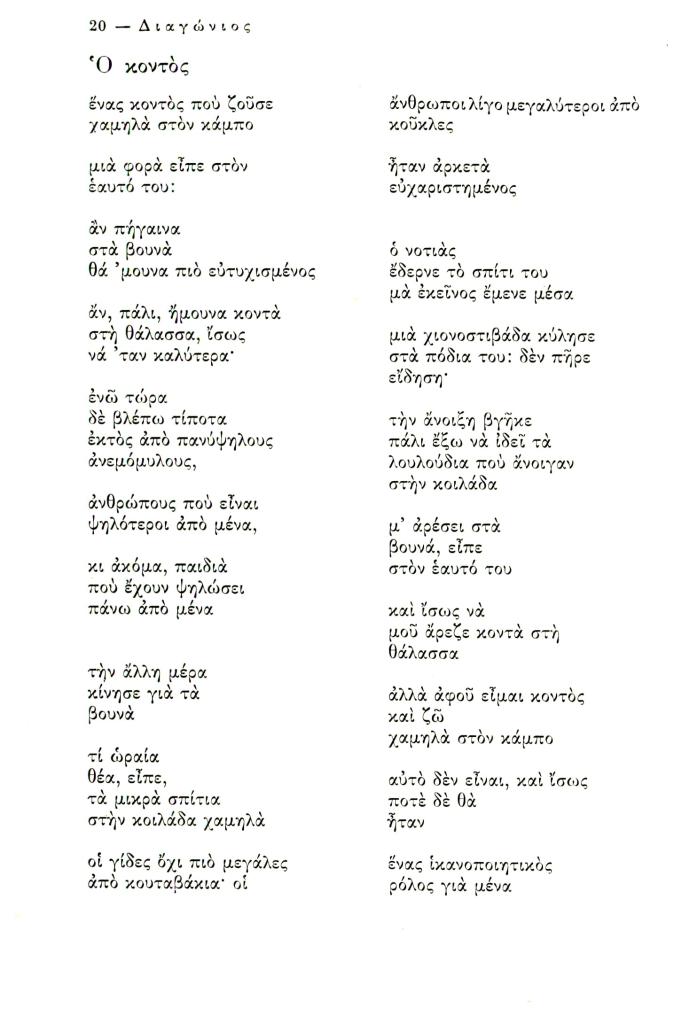 20 — Διαγώνιος
Ὁ κοντὸς
ἕνας κοντὸς ποὺ ζοῦσε
χαμηλὰ στὸν κάμπο
μιὰ φορὰ εἶπε στὸν
ἑαυτό του:
ἂν πήγαινα
στὰ βουνὰ
θά ’μουνα πιὸ εὐτυχισμένος
ἄν, πάλι, ἤμουνα κοντὰ
στὴ θάλασσα, ἴσως
νά ’ταν καλύτερα·
ἐνῶ τώρα
δὲ βλέπω τίποτα
ἐκτὸς ἀπὸ πανύψηλους
ἀνεμόμυλους,
ἀνθρώπους ποὺ εἶναι
ψηλότεροι ἀπὸ μένα,
κι ἀκόμα, παιδιὰ
ποὺ ἔχουν ψηλώσει
πάνω ἀπὸ μένα
τὴν ἄλλη μέρα
κίνησε γιὰ τὰ
βουνὰ
τί ὡραία
θέα, εἶπε,
τὰ μικρὰ σπίτια
στὴν κοιλάδα χαμηλὰ
οἱ γίδες ὄχι πιὸ μεγάλες
ἀπὸ κουταβάκια· οἱ
ἄνθρωποι λίγο μεγαλύτεροι ἀπὸ
κοῦκλες
ἦταν ἀρκετὰ
εὐχαριστημένος
ὁ νοτιὰς
ἔδερνε τὸ σπίτι του
μὰ ἐκεῖνος ἔμενε μέσα
μιὰ χιονοστιβάδα κύλησε
στὰ πόδια του: δὲν πῆρε
εἴδηση·
τὴν ἄνοιξη βγῆκε
πάλι ἔξω νὰ ἰδεῖ τὰ
λουλούδια ποὺ ἄνοιγαν
στὴν κοιλάδα
μ’ ἀρέσει στὰ
βουνά, εἶπε
στὸν ἑαυτό του
καὶ ἴσως νὰ
μοῦ ἄρεζε κοντὰ στὴ
θάλασσα
ἀλλὰ ἀφοῦ εἶμαι κοντὸς
καὶ ζῶ
χαμηλὰ στὸν κάμπο
αὐτὸ δὲν εἶναι, καὶ ἴσως
ποτὲ δὲ θὰ
ἦταν
ἕνας ἱκανοποιητικὸς
ρόλος γιὰ μένα